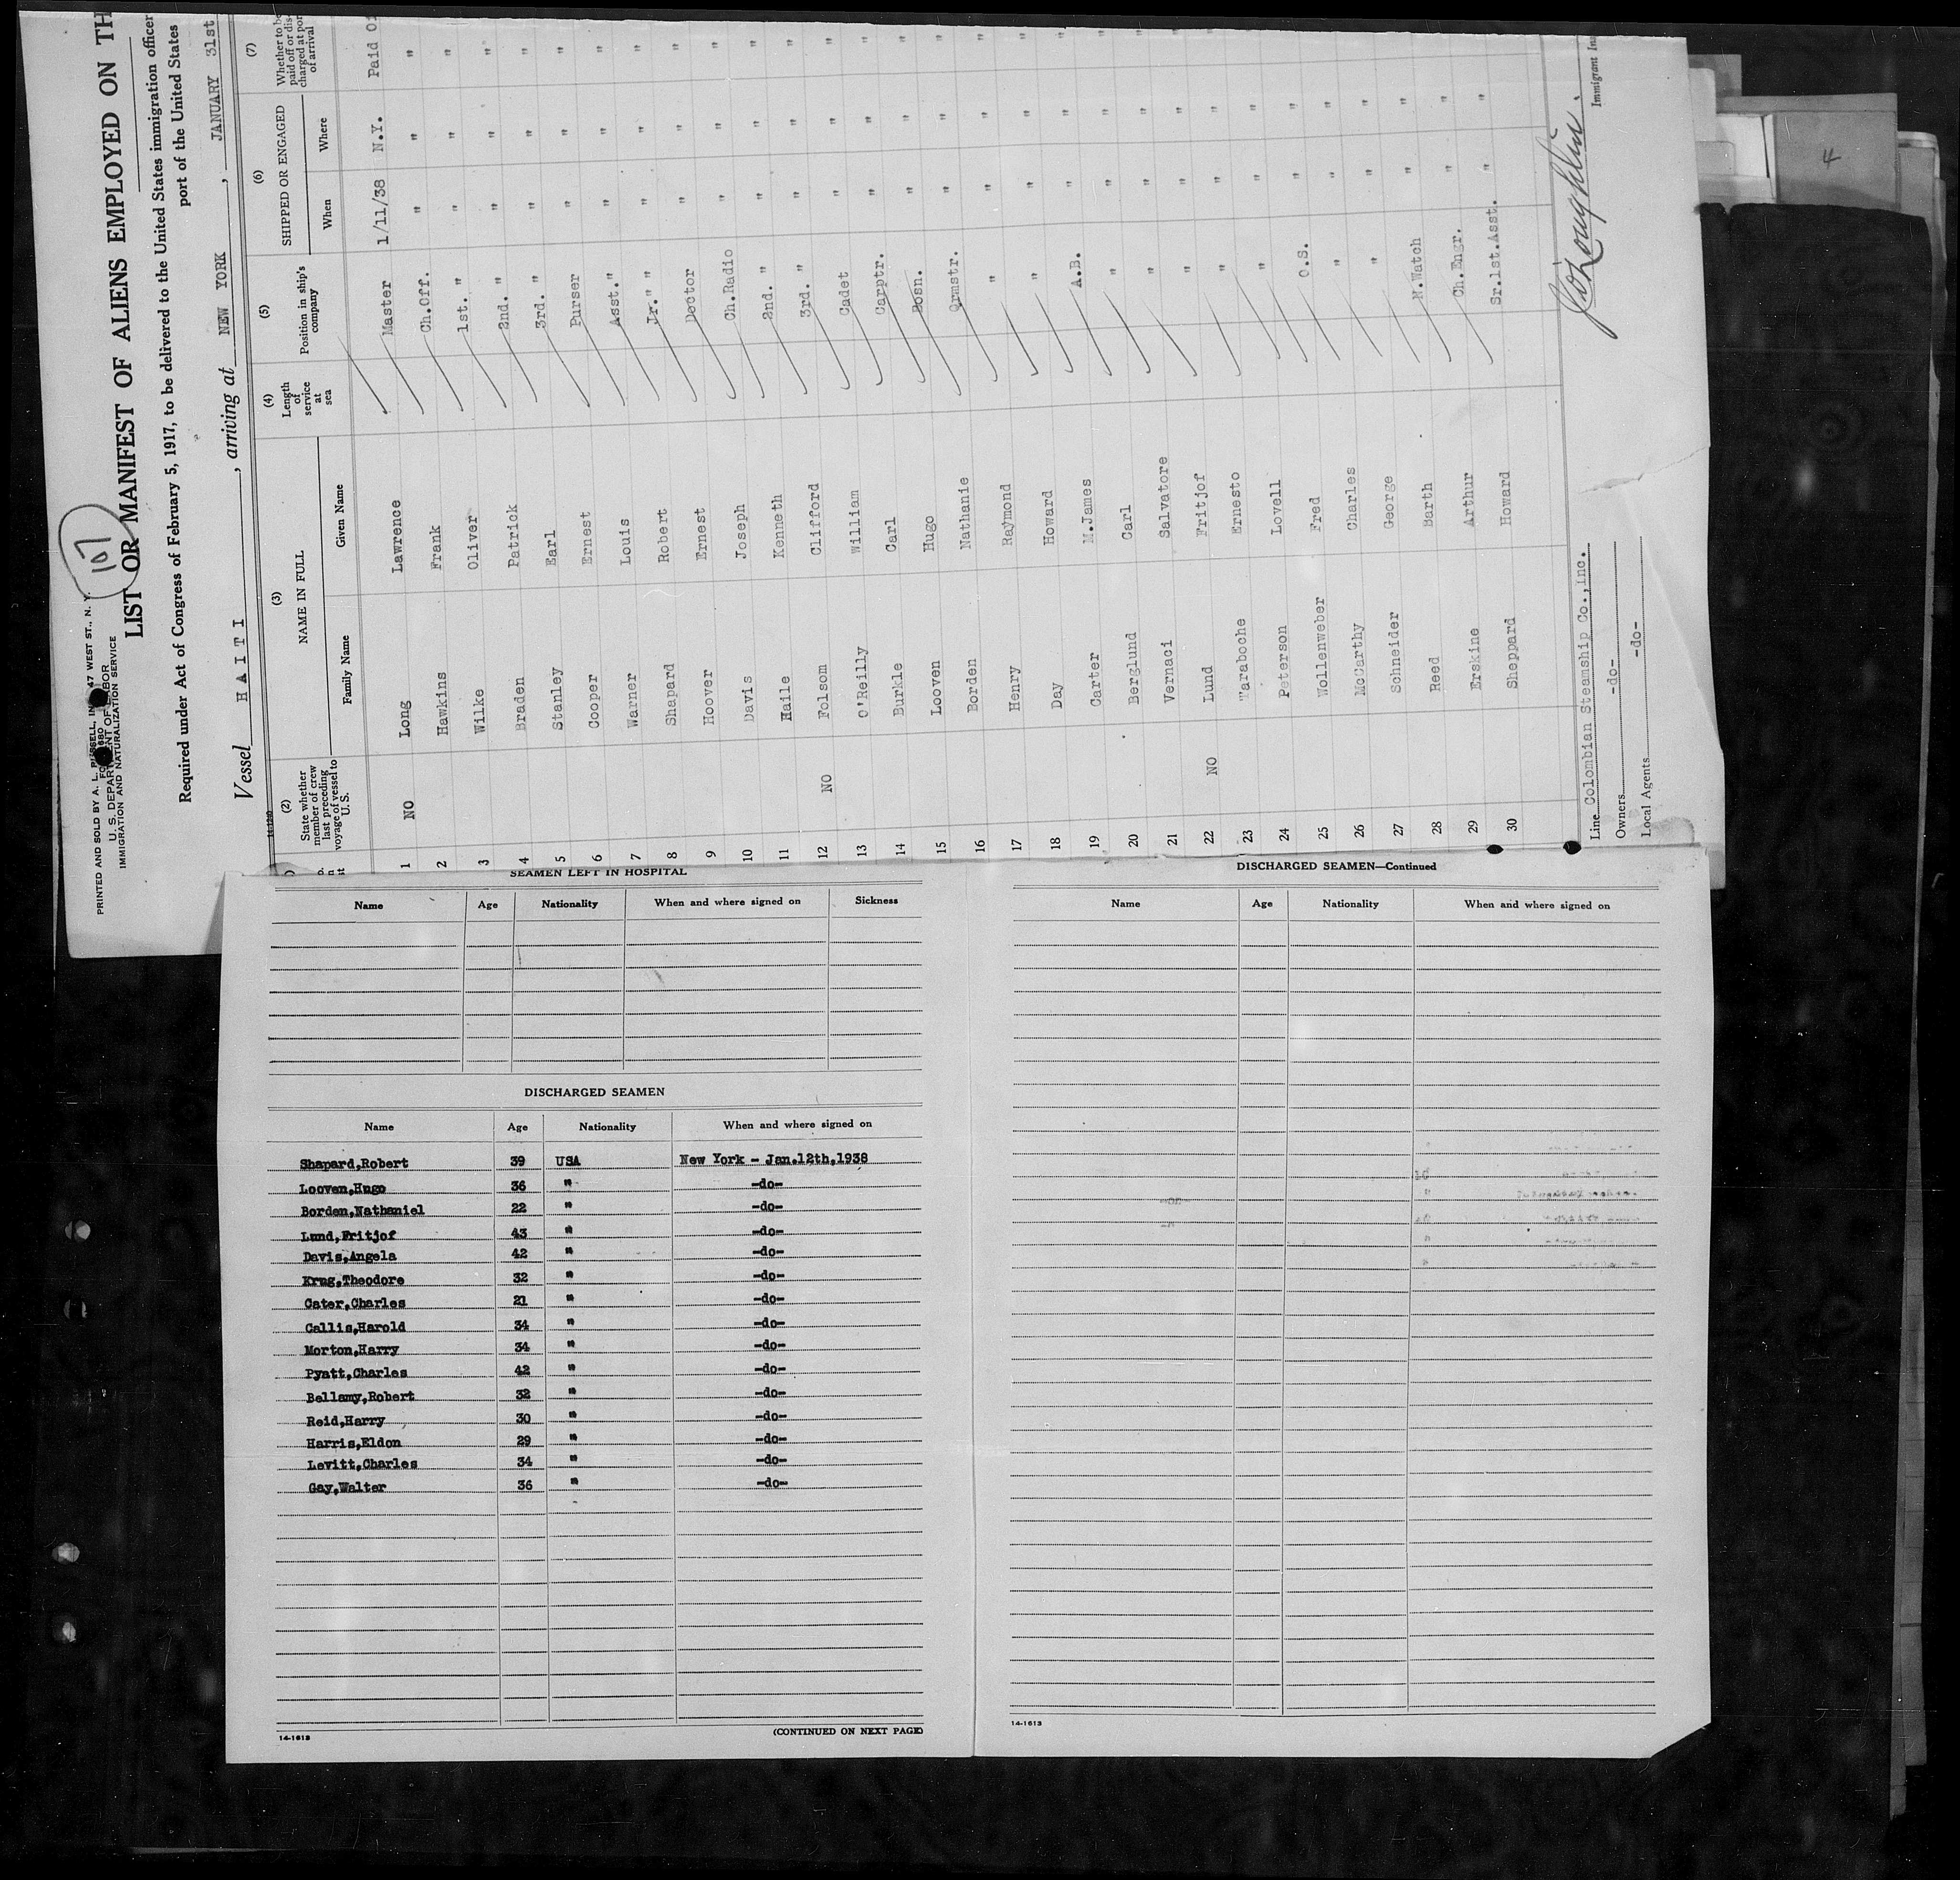 PRINTED AND SOLD BY A. L. RUSSELL, IN 47 WEST ST., N. Y.
680
U. S. DEPARTMENT OF LABOR
IMMIGRATION AND NATURALIZATION SERVICE
107
LIST OR MANIFEST OF ALIENS EMPLOYED ON TH
Required under Act of Congress of February 5, 1917, to be delivered to the United States immigration officer
port of the United States
Vessel HAITI, arriving at NEW YORK, JANUARY 31st
(2) (3) (4) (5) (6) (7)
State whether member of crew last preceding voyage of vessel to U. S. NAME IN FULL Length of service at sea Position in ship's company SHIPPED OR ENGAGED Whether to be paid off or discharged at port of arrival
Family Name Given Name When Where
1 NO Long Lawrence Master 1/11/38 N.Y. Paid Of
2 Hawkins Frank Ch.Off. " " "
3 Wilke Oliver 1st. " " " "
4 Braden Patrick 2nd. " " " "
5 Stanley Earl 3rd. " " " "
6 Cooper Ernest Purser " " "
7 Warner Louis Asst." " " "
8 Shapard Robert Jr." " " " "
9 Hoover Ernest Doctor " " "
10 Davis Joseph Ch.Radio " " "
11 Haile Kenneth 2nd. " " " "
12 NO Folsom Clifford 3rd. " " " "
13 O'Reilly William Cadet " " "
14 Burkle Carl Carptr. " " "
15 Looven Hugo Bosn. " " "
16 Borden Nathanie Qrmstr. " " "
17 Henry Raymond " " " "
18 Day Howard " " " "
19 Carter M.James A.B. " " "
20 Berglund Carl " " " "
21 Vernaci Salvatore " " " "
22 NO Lund Fritjof " " " "
23 "araboche Ernesto " " " "
24 Peterson Lovell " " " "
25 Wollenweber Fred O.S. " "
26 McCarthy Charles " " "
27 Schneider George " " "
28 Reed Barth N.Watch " "
29 Erskine Arthur Ch.Engr. " "
30 Sheppard Howard Sr.1st.Asst. " "
Line Colombian Steamship Co.,Inc.
Owners -do-
Local Agents -do-
Immigrant Ins
4
SEAMEN LEFT IN HOSPITAL
Name Age Nationality When and where signed on Sickness
DISCHARGED SEAMEN
Name Age Nationality When and where signed on
Shapard,Robert 39 USA New York - Jan.12th,1938
Looven,Hugo 36 " -do-
Borden,Nathaniel 22 " -do-
Lund,Fritjof 43 " -do-
Davis,Angela 42 " -do-
Krug,Theodore 32 " -do-
Cater,Charles 21 " -do-
Callis,Harold 34 " -do-
Morton,Harry 34 " -do-
Pyatt,Charles 42 " -do-
Bellamy,Robert 32 " -do-
Reid,Harry 30 " -do-
Harris,Eldon 29 " -do-
Levitt,Charles 34 " -do-
Gay,Walter 36 " -do-
14-1613
(CONTINUED ON NEXT PAGE)
DISCHARGED SEAMEN—Continued
Name Age Nationality When and where signed on
14-1613